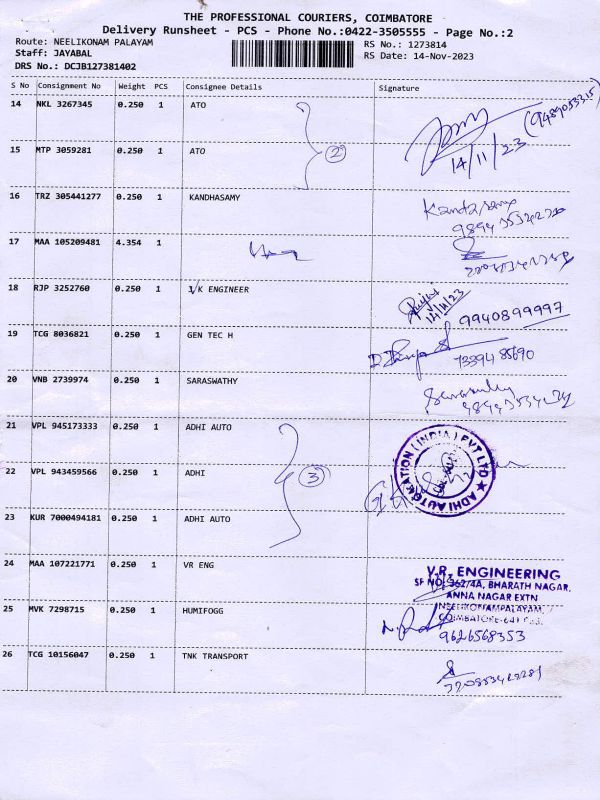 THE PROFESSIONAL COURIERS, COIMBATORE
Delivery Runsheet - PCS - Phone No.:0422-3505555 - Page No.:2
Route: NEELIKONAM PALAYAM
Staff: JAYABAL
DRS No.: DCJB127381402
RS No.: 1273814
RS Date: 14-Nov-2023
S No Consignment No Weight PCS Consignee Details Signature
14 NKL 3267345 0.250 1 ATO
14/11/23
15 MTP 3059281 0.250 1 ATO
2
16 TRZ 305441277 0.250 1 KANDHASAMY
Kandasamy
17 MAA 105209481 4.354 1
18 RJP 3252760 0.250 1 K ENGINEER
14/11/23
9940899997
19 TCG 8036821 0.250 1 GEN TEC H
73394 85690
20 VNB 2739974 0.250 1 SARASWATHY
21 VPL 945173333 0.250 1 ADHI AUTO
22 VPL 943459566 0.250 1 ADHI
3
ADHI AUTOMATION (INDIA) PVT LTD
23 KUR 7000494181 0.250 1 ADHI AUTO
24 MAA 107221771 0.250 1 VR ENG
V.R. ENGINEERING
SF NO: 362/4A, BHARATH NAGAR,
ANNA NAGAR EXTN
NEELIKONAMPALAYAM,
COIMBATORE-641
25 MVK 7298715 0.250 1 HUMIFOGG
9626568353
26 TCG 10156047 0.250 1 TNK TRANSPORT